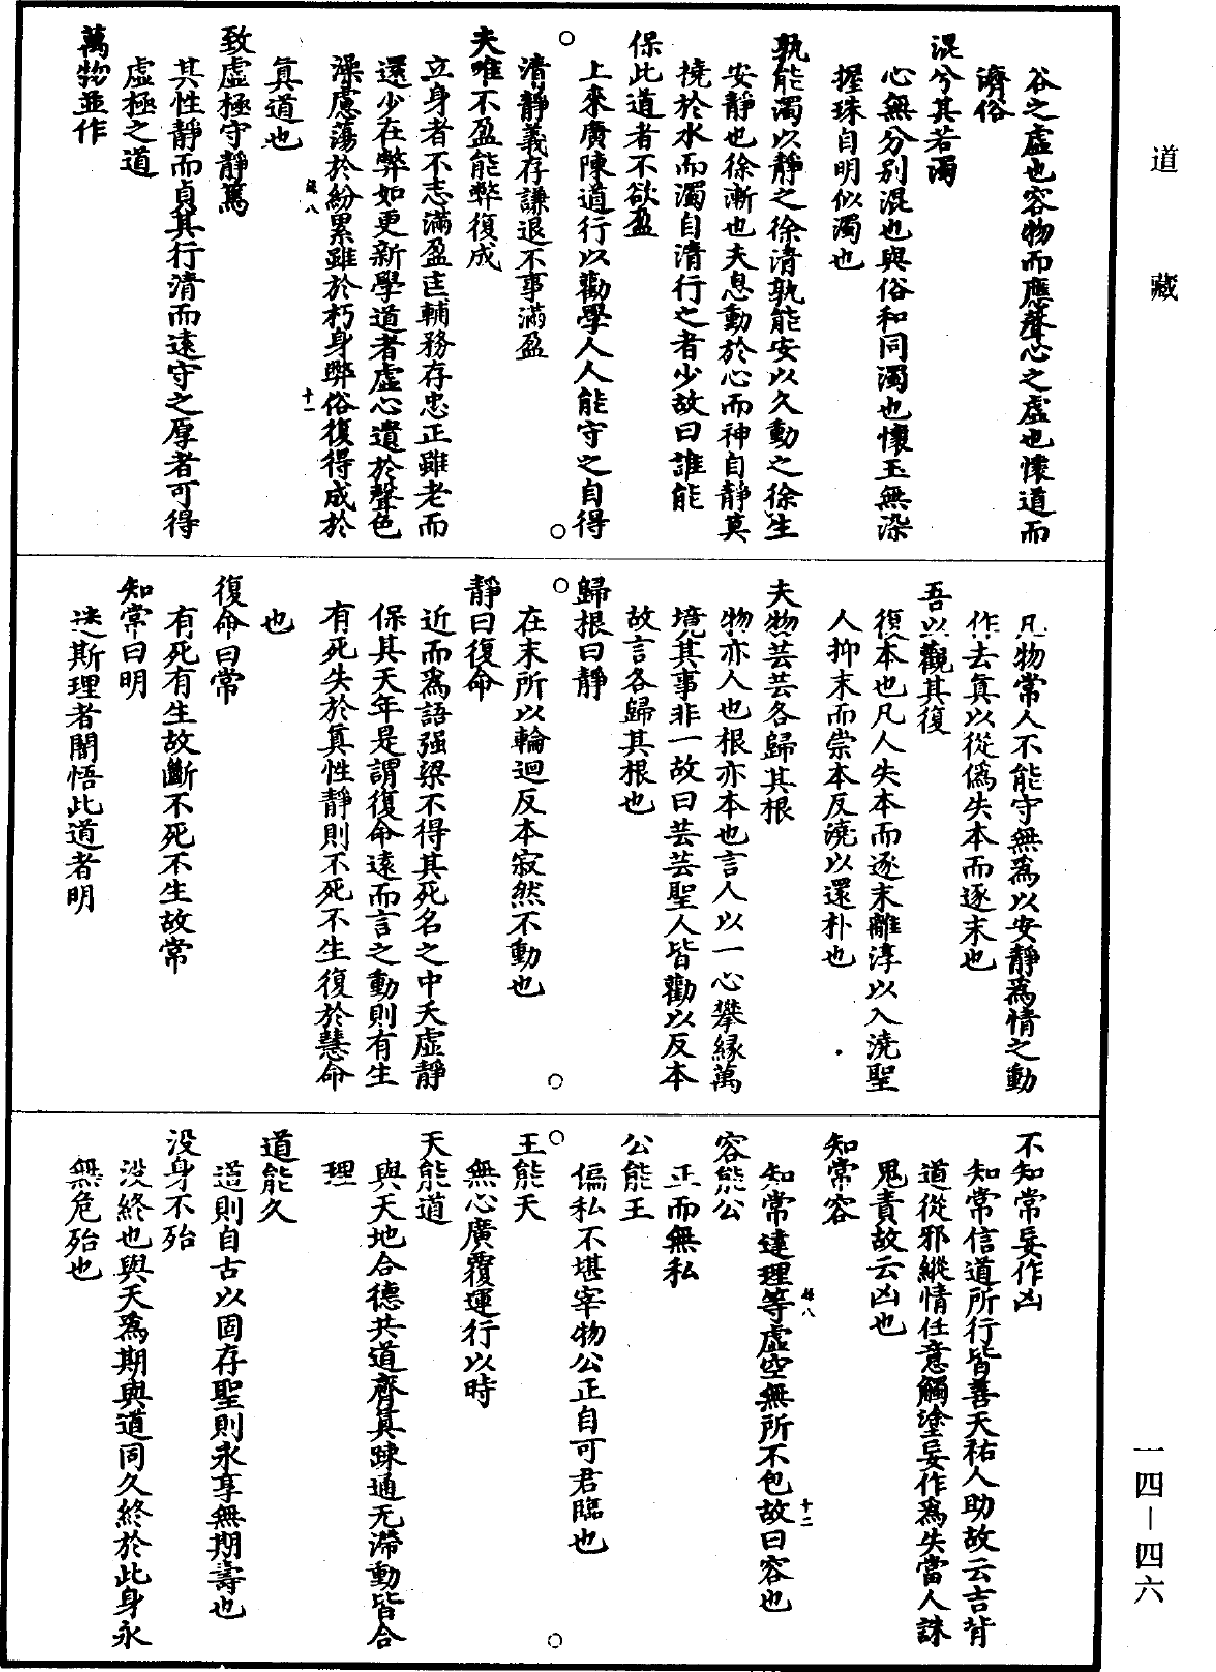 道藏
谷之虛也容物而應聲心之虛也懷道而
濟俗
混兮其若濁
心無分别混也與俗和同濁也懷玉無染
握珠自明似濁也
孰能濁以靜之徐清孰能安以久動之徐生
安靜也徐漸也夫息動於心而神自靜莫
撓於水而濁自清行之者少故曰誰能
保此道者不欲盈
上來廣陳道行以勸學人人能守之自得
清靜義存謙退不事滿盈
夫唯不盈能弊復成
立身者不志滿盈匡輔務存忠正雖老而
還少在弊如更新學道者虛心遺於聲色
澡慮蕩於紛累雖於朽身弊俗復得成於
八
十一
真道也
致虛極守靜篤
其性靜而貞其行清而遠守之厚者可得
虛極之道
萬物並作
凡物常人不能守無爲以安靜爲情之動
作去真以從僞失本而逐末也
吾以觀其復
復本也凡人失本而逐末離淳以入澆聖
人抑末而崇本反澆以還朴也
夫物芸芸各歸其根
物亦人也根亦本也言人以一心攀緣萬
境其事非一故曰芸芸聖人皆勸以反本
故言各歸其根也
歸根曰靜
在末所以輪迴反本寂然不動也
靜曰復命
近而爲語强梁不得其死名之中夭虛靜
保其天年是謂復命遠而言之動則有生
有死失於真性靜則不死不生復於慧命
也
復命曰常
有死有生故斷不死不生故常
知常曰明
迷斯理者闇悟此道者明
不知常妄作凶
知常信道所行皆善天祐人助故云吉背
道從邪縱情任意觸塗妄作爲失當人誅
鬼責故云凶也
知常容
八
十二
知常達理等虛空無所不包故曰容也
容能公
正而無私
公能王
偏私不堪宰物公正自可君臨也
王能天
無心廣覆運行以時
天能道
與天地合德共道齊真踈通无滯動皆合
理
道能久
道則自古以固存聖則永享無期壽也
没身不殆
没終也與天爲期與道同久終於此身永
無危殆也
一四－四六